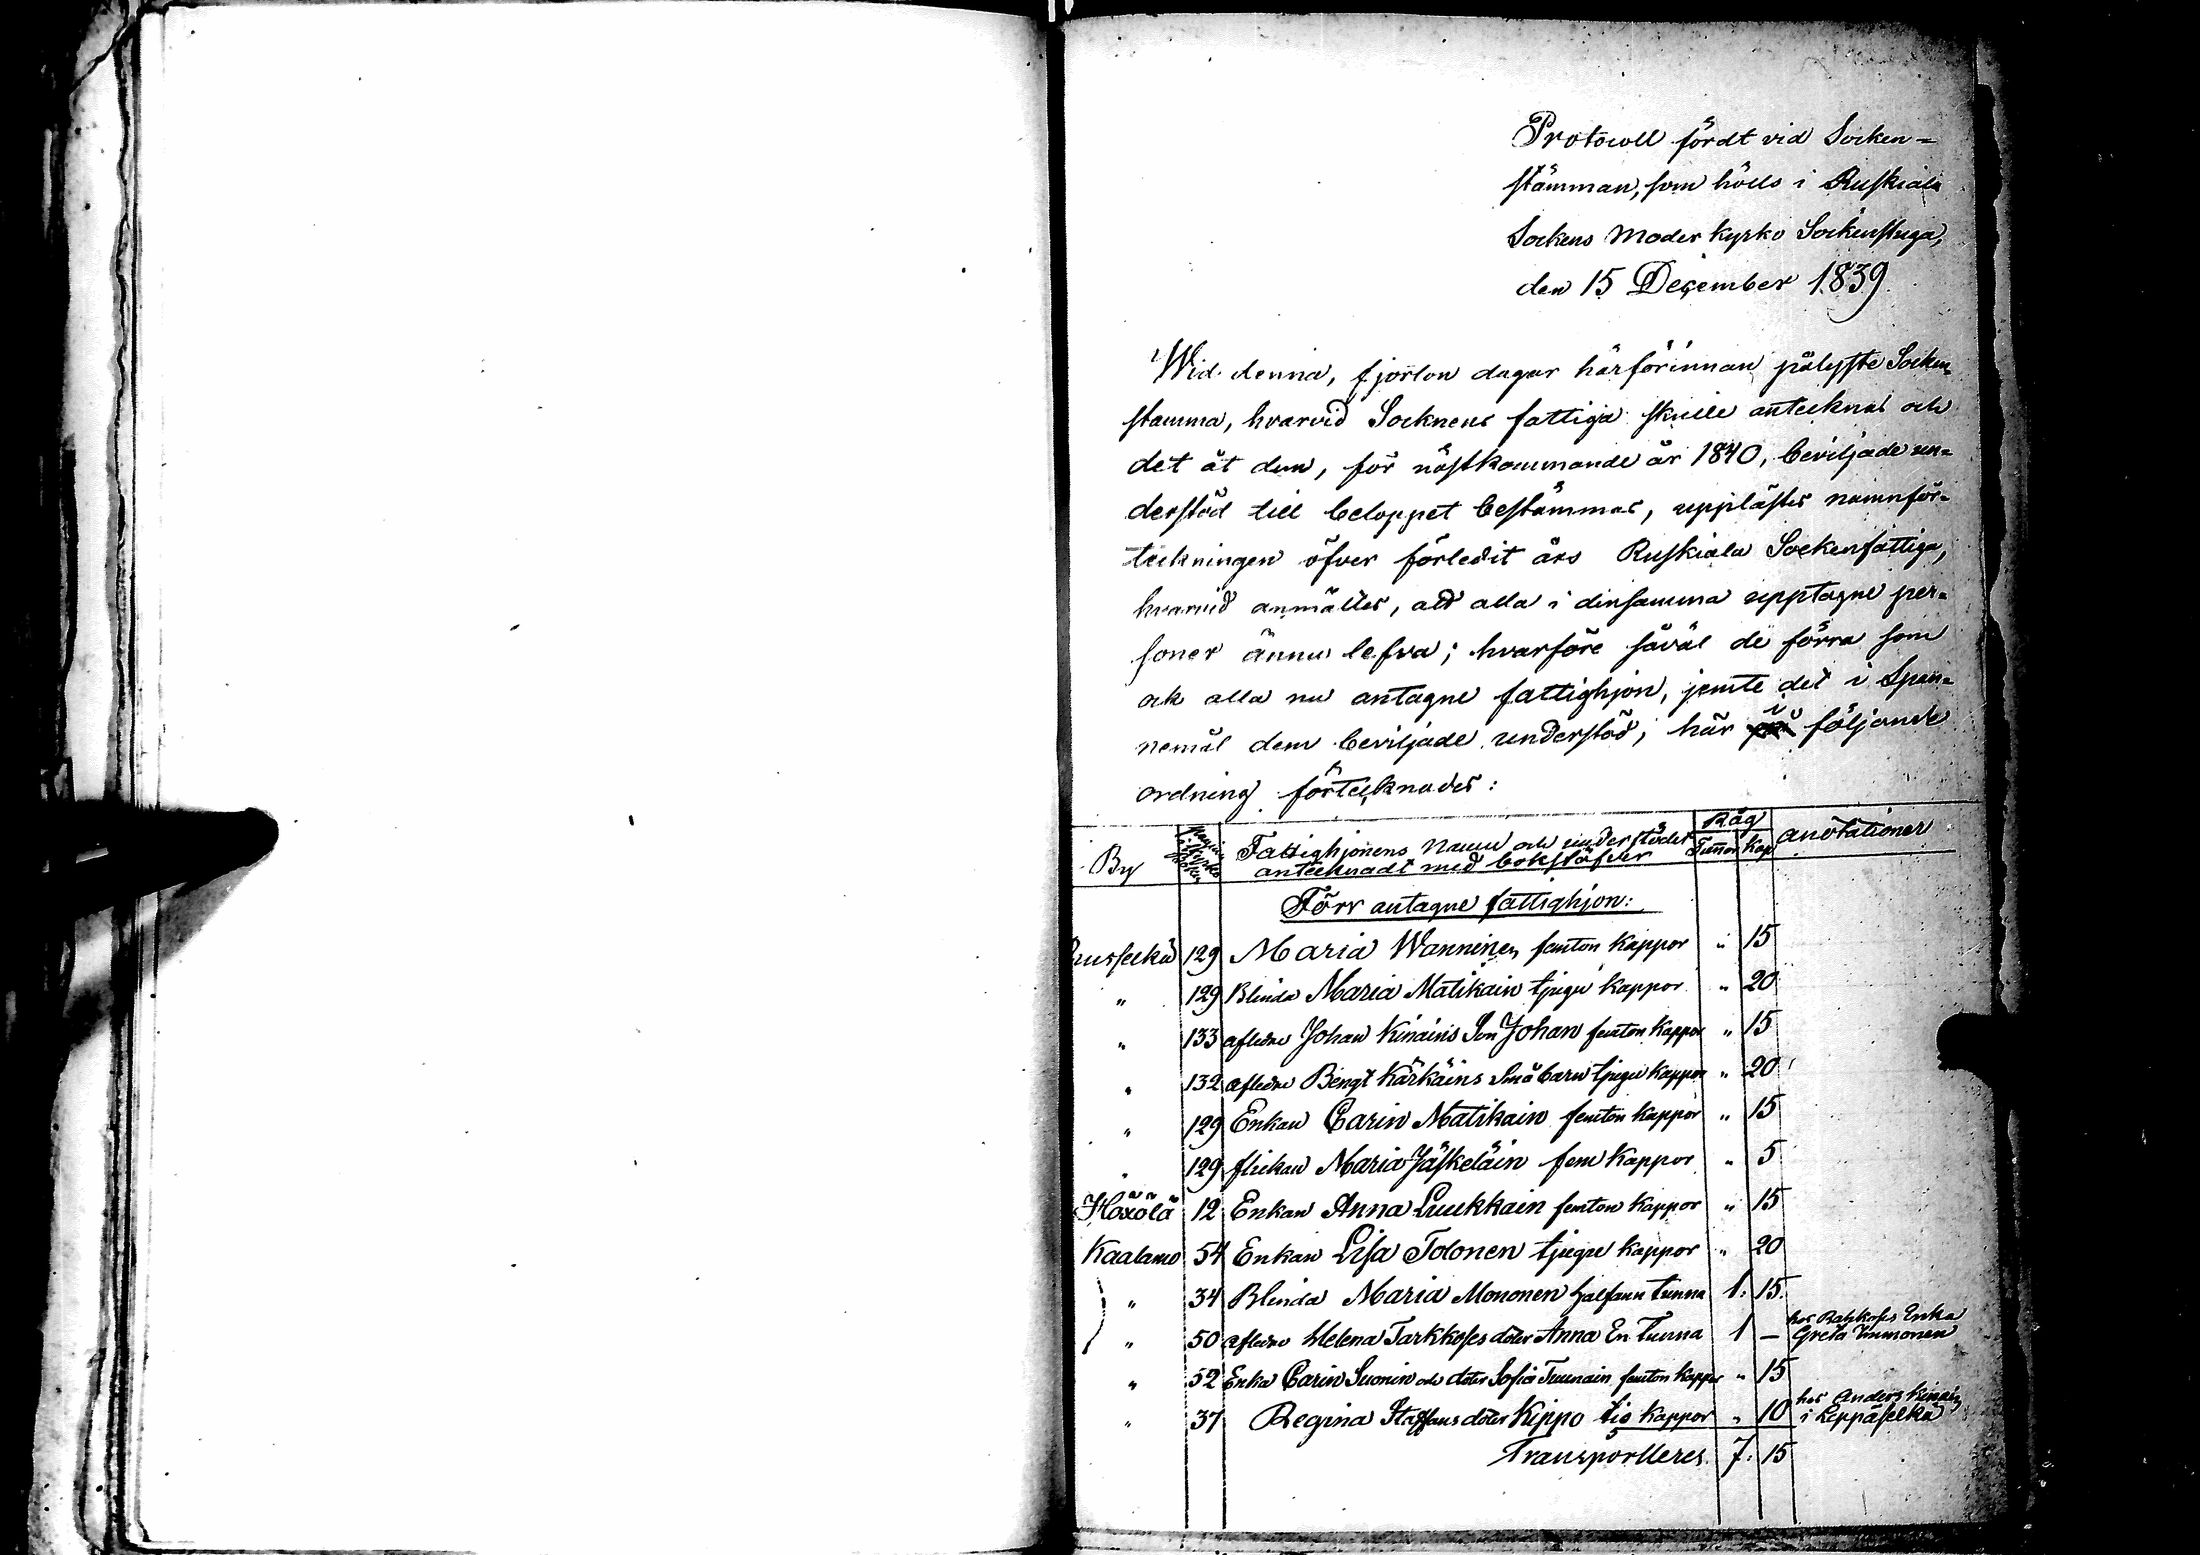 Protocoll fördt vid Socken-
stämman, som hölls i Ruskiala
Sockens Moder kyrko Sockenstuga,
den 15 December 1839
Wid denna, fjorton dagar härförinnan pålyste Socken
stämma, hvarvid Socknens fattiga skulle antecknas och
det åt dem, för nästkommande år 1840, beviljade un-
derstöd till beloppet bestämmas, upplästes namnför-
teckningen öfver förledit års Ruskiala Sockenfattiga,
hvarvid anmältes, att alla i densamma upptagne per-
soner ännu lefva; hvarföre såväl de förra som
ock alla nu antagne fattighjon, jemte det i Span-
nemål dem beviljade understöd, här i följande
ordning förtecknades:
By Fattighjonens Namn och understödet Råg anotationer
antecknadt med bokstäfver Tunnor Kap
Förr antagne fattighjon:
129 Maria Wanninen femton kappor " 15
" 129 Blinda Maria Matikain tjugu kappor " 20
" 133 afledne Johan Kinains Son Johan femton kappor " 15
" 132 afledne Bengt Kärkäins Små barn tjugu kappor " 20
" 129 Enkan Carin Matikain femton kappor " 15
" 129 flickan Maria Jäskeläin fem kappor " 5
Höxölä 12 Enkan Anna Luukkain femton kappor " 15
Kaalamo 54 Enkan Lisa Tolonen tjugu kappor " 20
" 34 Blinda Maria Mononen halfann tunna 1: 15.
" 50 afledne Helena Tarkkoses doter Anna En tunna 1 — hos Enka
Greta Immonen
" 52 Enka Carin Suonin och doter Sofia Tuunain femton kappor " 15
" 37 Regina Staffans doter Kippo tio kappor " 10 hos Anders
i Leppäselkä
Transporteres 7: 15